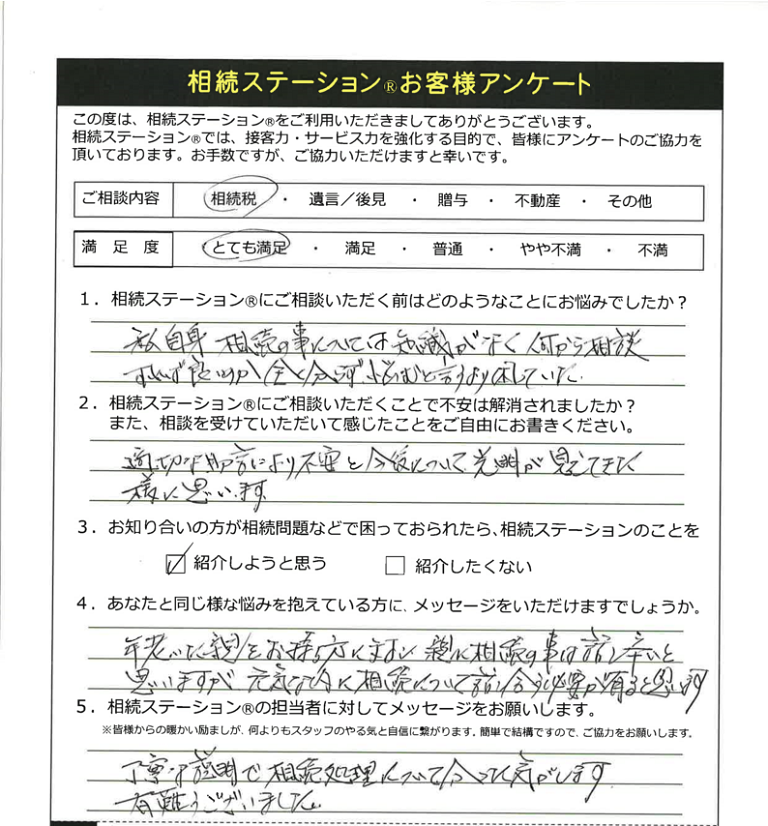 相続ステーション®お客様アンケート
この度は、相続ステーション®をご利用いただきましてありがとうございます。
相続ステーション®では、接客力・サービス力を強化する目的で、皆様にアンケートのご協力を
頂いております。お手数ですが、ご協力いただけますと幸いです。
ご相談内容 相続税 ・ 遺言／後見 ・ 贈与 ・ 不動産 ・ その他
満足度 とても満足 ・ 満足 ・ 普通 ・ やや不満 ・ 不満
１．相続ステーション®にご相談いただく前はどのようなことにお悩みでしたか？
私自身 相続の事については知識がなく 何から相談
すれば良いのか 全く分らず 悩むと言うより困していた
２．相続ステーション®にご相談いただくことで不安は解消されましたか？
また、相談を受けていただいて感じたことをご自由にお書きください。
適切な助言により不安と今後について光明が見えてきた
様に思います
３．お知り合いの方が相続問題などで困っておられたら、相続ステーションのことを
紹介しようと思う 紹介したくない
４．あなたと同じ様な悩みを抱えている方に、メッセージをいただけますでしょうか。
年老いた親をお持ち方に 親に相続の事は話し辛いと
思いますが 元気な内に相続について話し合う必要が有ると思います
５．相続ステーション®の担当者に対してメッセージをお願いします。
※皆様からの暖かい励ましが、何よりもスタッフのやる気と自信に繋がります。簡単で結構ですので、ご協力をお願いします。
丁寧な説明で相続処理について分った気がします
有難うございました。